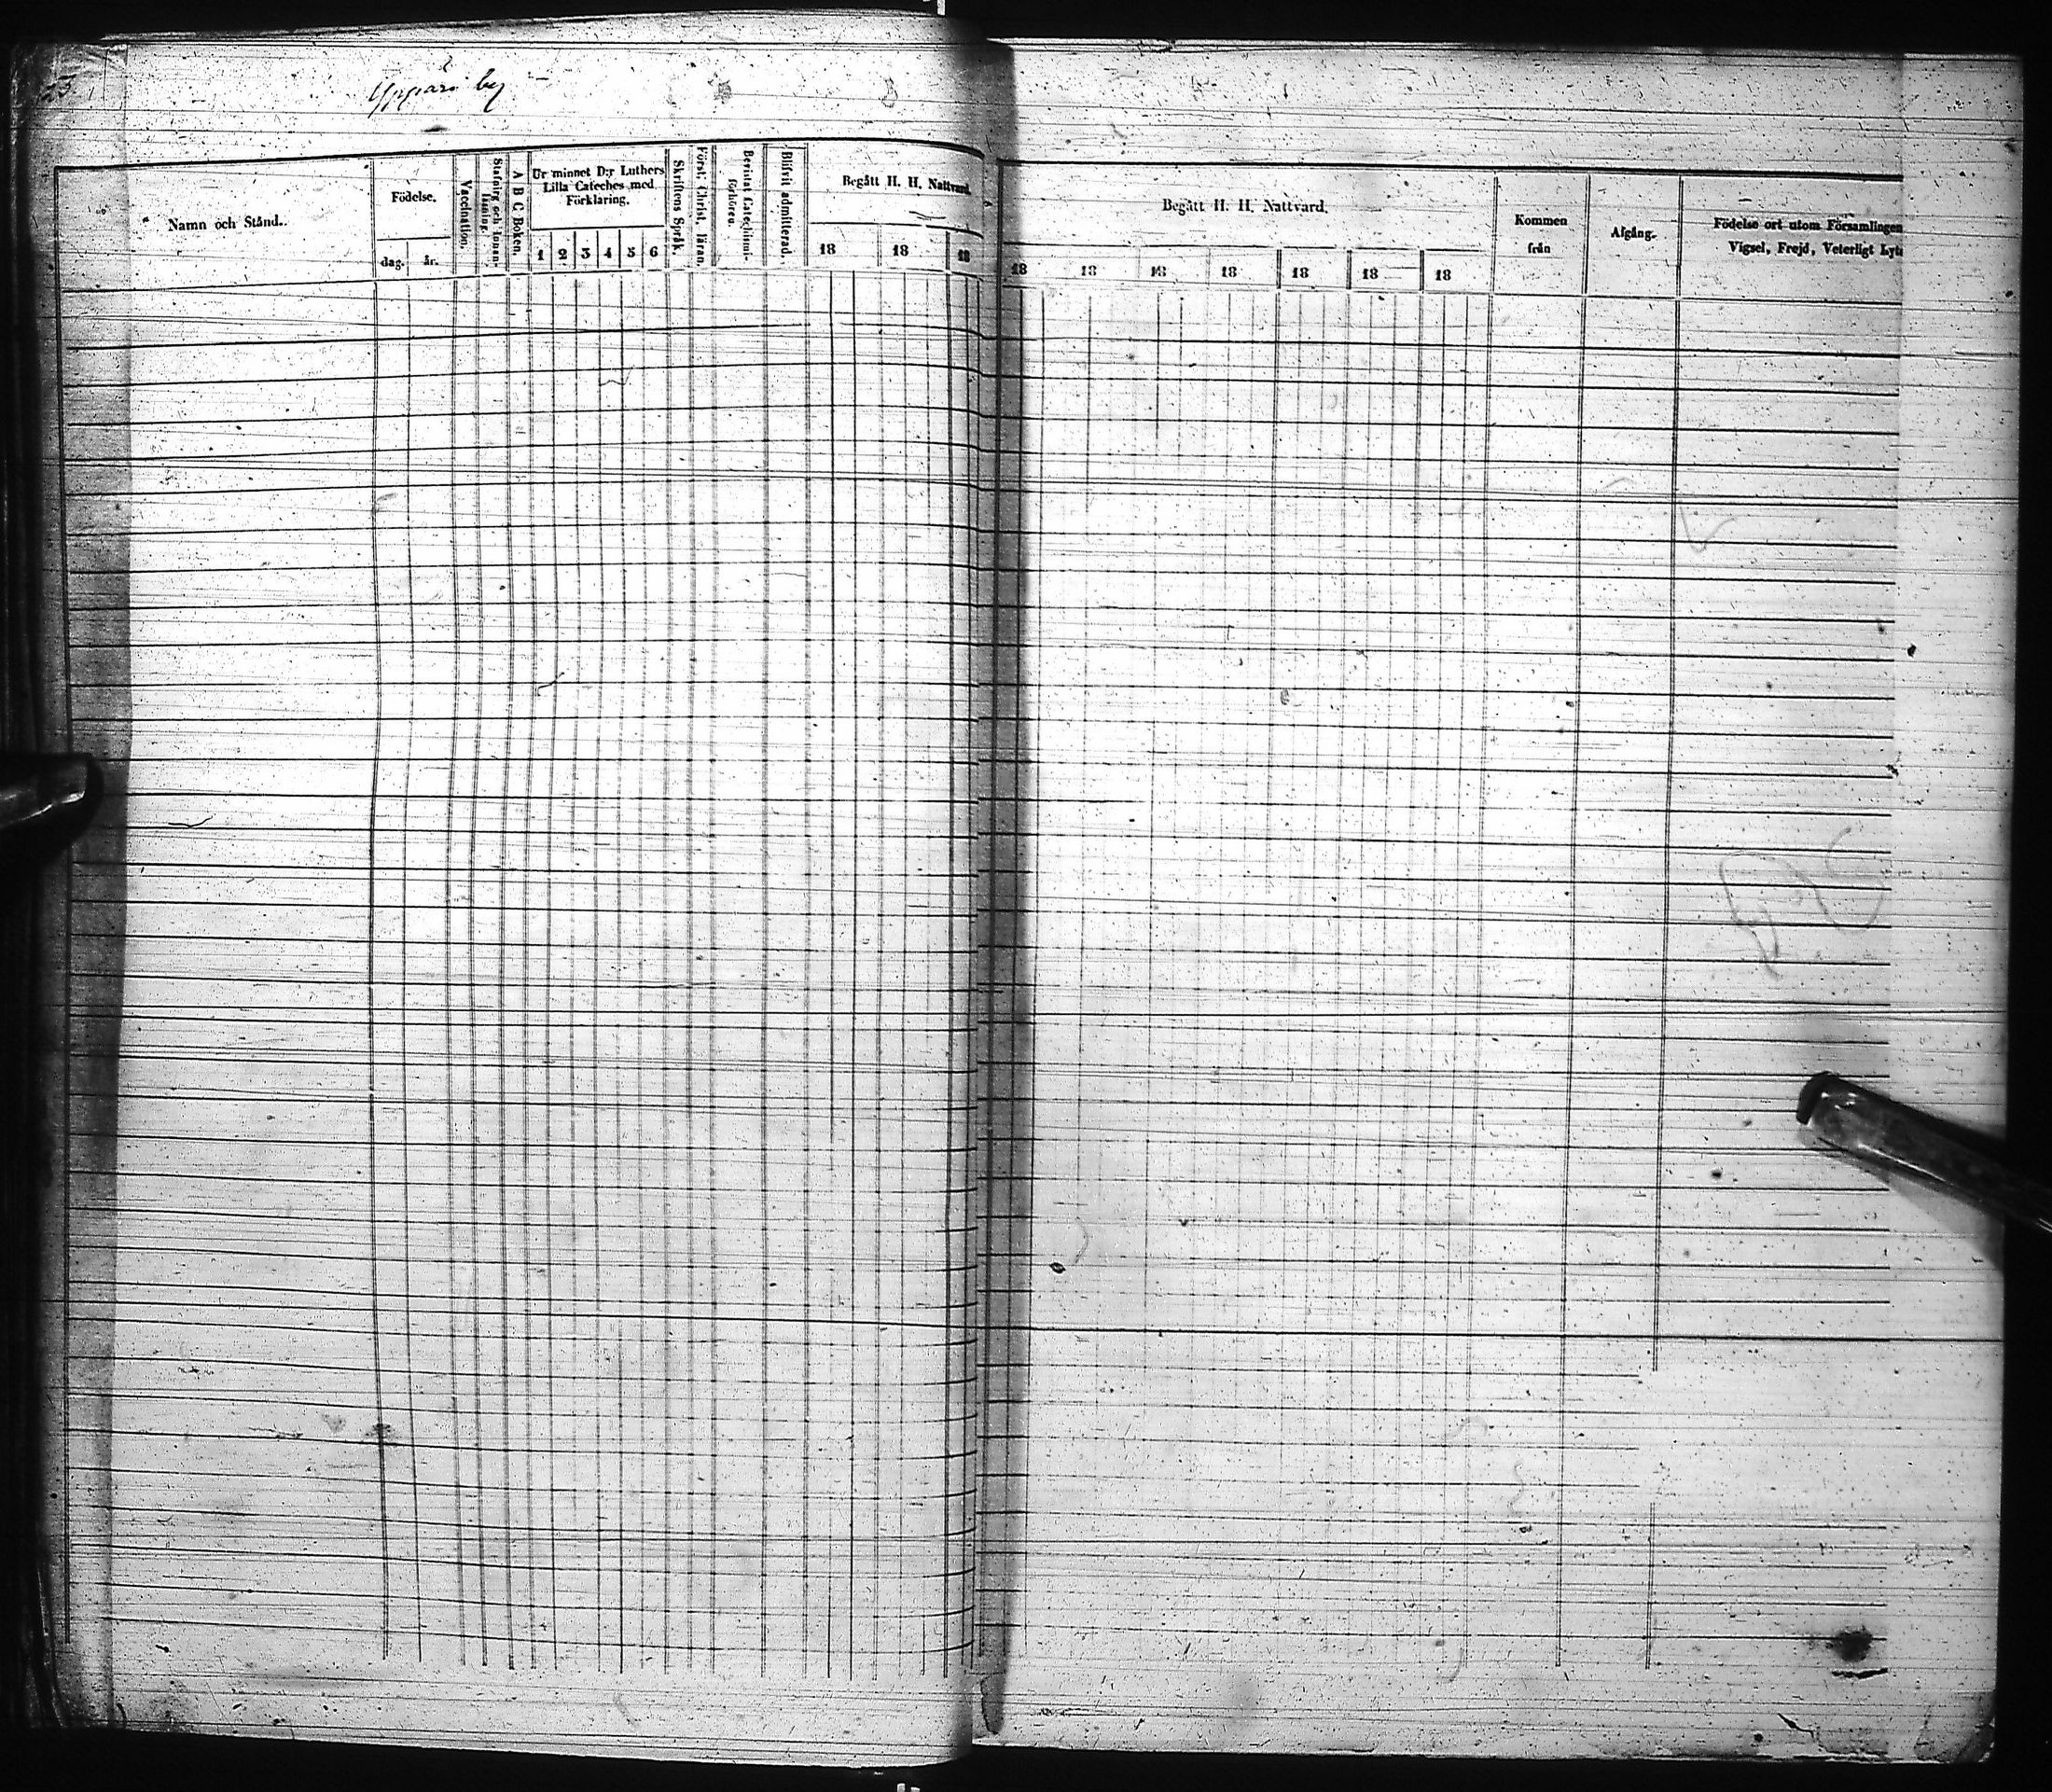 Yppäri by
Namn och Stånd.
Födelse.
dag. år.
Vaccination.
Stafning och Innan-
läsning.
A B C Boken.
Ur minnet D:r Luthers
Lilla Cateches med
Förklaring.
1 2 3 4 5 6
Skriftens Språk.
Först. Christ. läran.
Bevistat Catechismi-
förhören.
Blifvit admitterad.
Begått H. H. Nattvard.
18 18 18
Begått H. H. Nattvard.
18 18 18 18 18 18 18
Kommen
från
Afgång.
Födelse ort utom Församlingen
Vigsel, Frejd, Veterligt Lyte